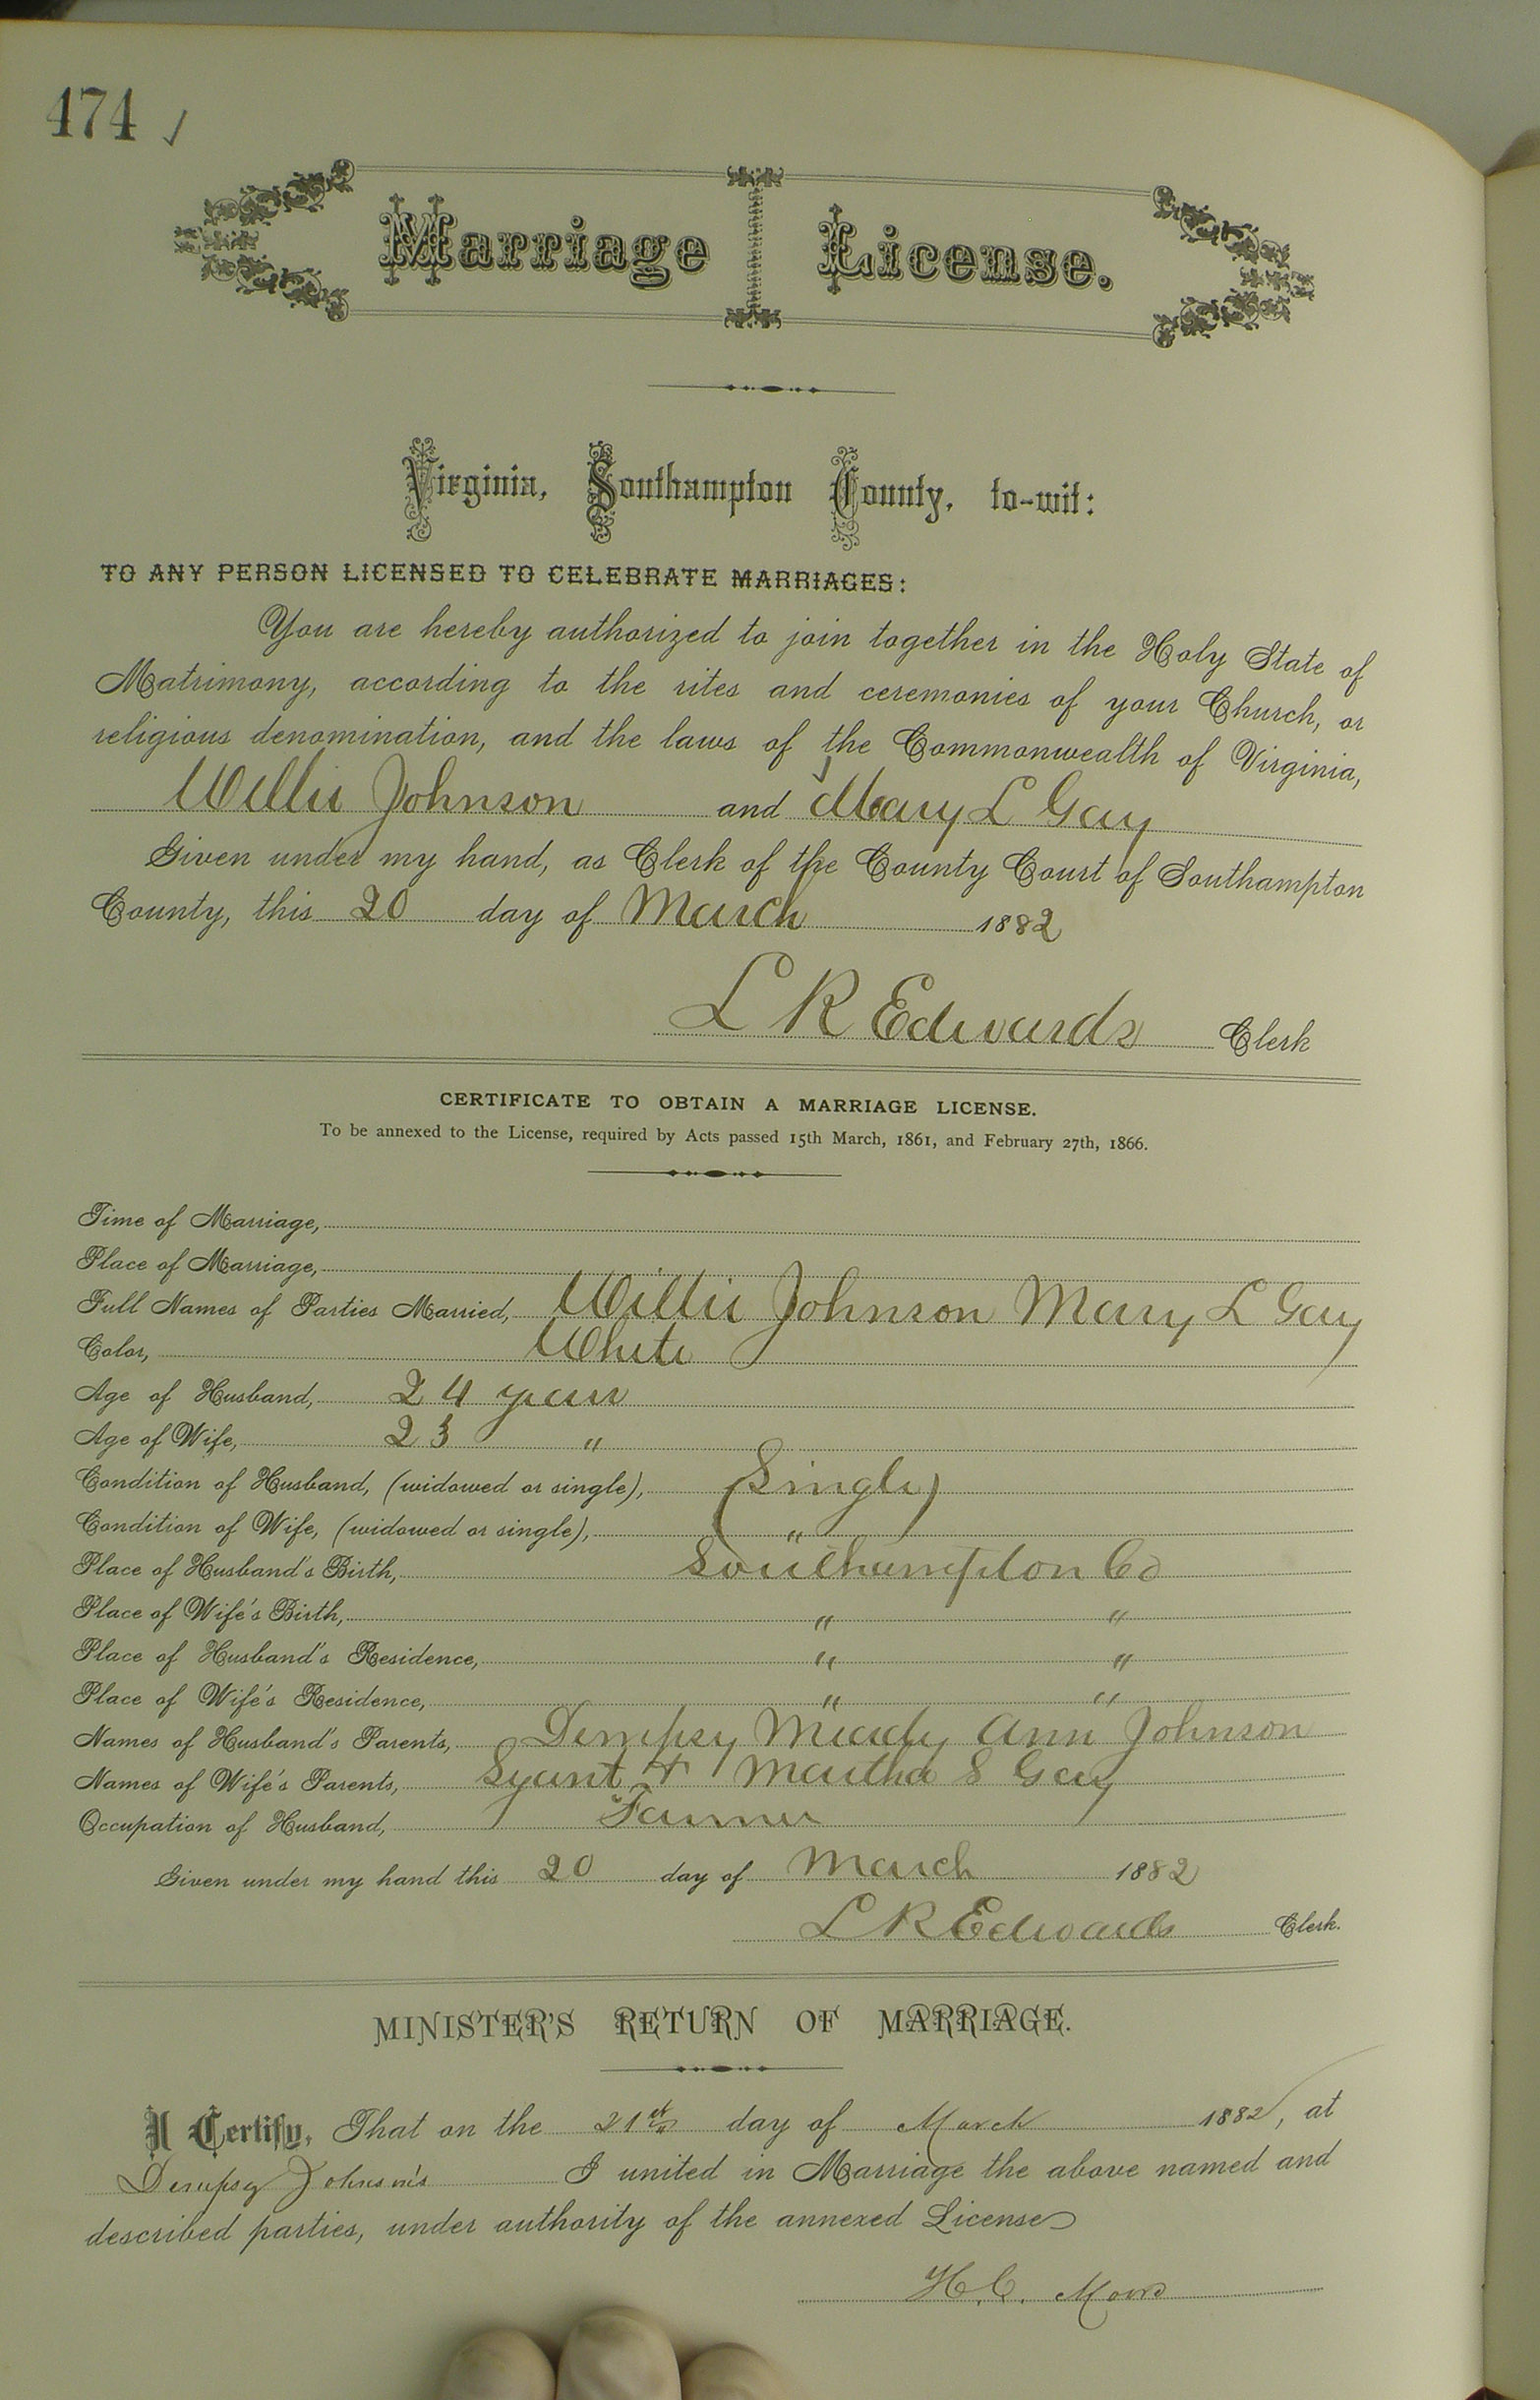 474 ✓
Marriage License.
Virginia, Southampton County, to-wit:
TO ANY PERSON LICENSED TO CELEBRATE MARRIAGES:
You are hereby authorized to join together in the Holy State of
Matrimony, according to the rites and ceremonies of your Church, or
religious denomination, and the laws of the Commonwealth of Virginia,
Willie Johnson and Mary L Gay
Given under my hand, as Clerk of the County Court of Southampton
County, this 20 day of March 1882
L R Edwards Clerk
CERTIFICATE TO OBTAIN A MARRIAGE LICENSE.
To be annexed to the License, required by Acts passed 15th March, 1861, and February 27th, 1866.
Time of Marriage,
Place of Marriage,
Full Names of Parties Married, Willie Johnson Mary L Gay
Color, White
Age of Husband, 24 years
Age of Wife, 23 "
Condition of Husband, (widowed or single), (Single)
Condition of Wife, (widowed or single), "
Place of Husband's Birth, Southampton Co
Place of Wife's Birth, " "
Place of Husband's Residence, " "
Place of Wife's Residence, " "
Names of Husband's Parents, Dempsy Ann Johnson
Names of Wife's Parents, Martha S Gay
Occupation of Husband, Farmer
Given under my hand this 20 day of March 1882
L R Edwards Clerk.
MINISTER'S RETURN OF MARRIAGE.
I Certify, That on the 21st day of March 1882, at
Dempsy Johnson's I united in Marriage the above named and
described parties, under authority of the annexed License
H. C.